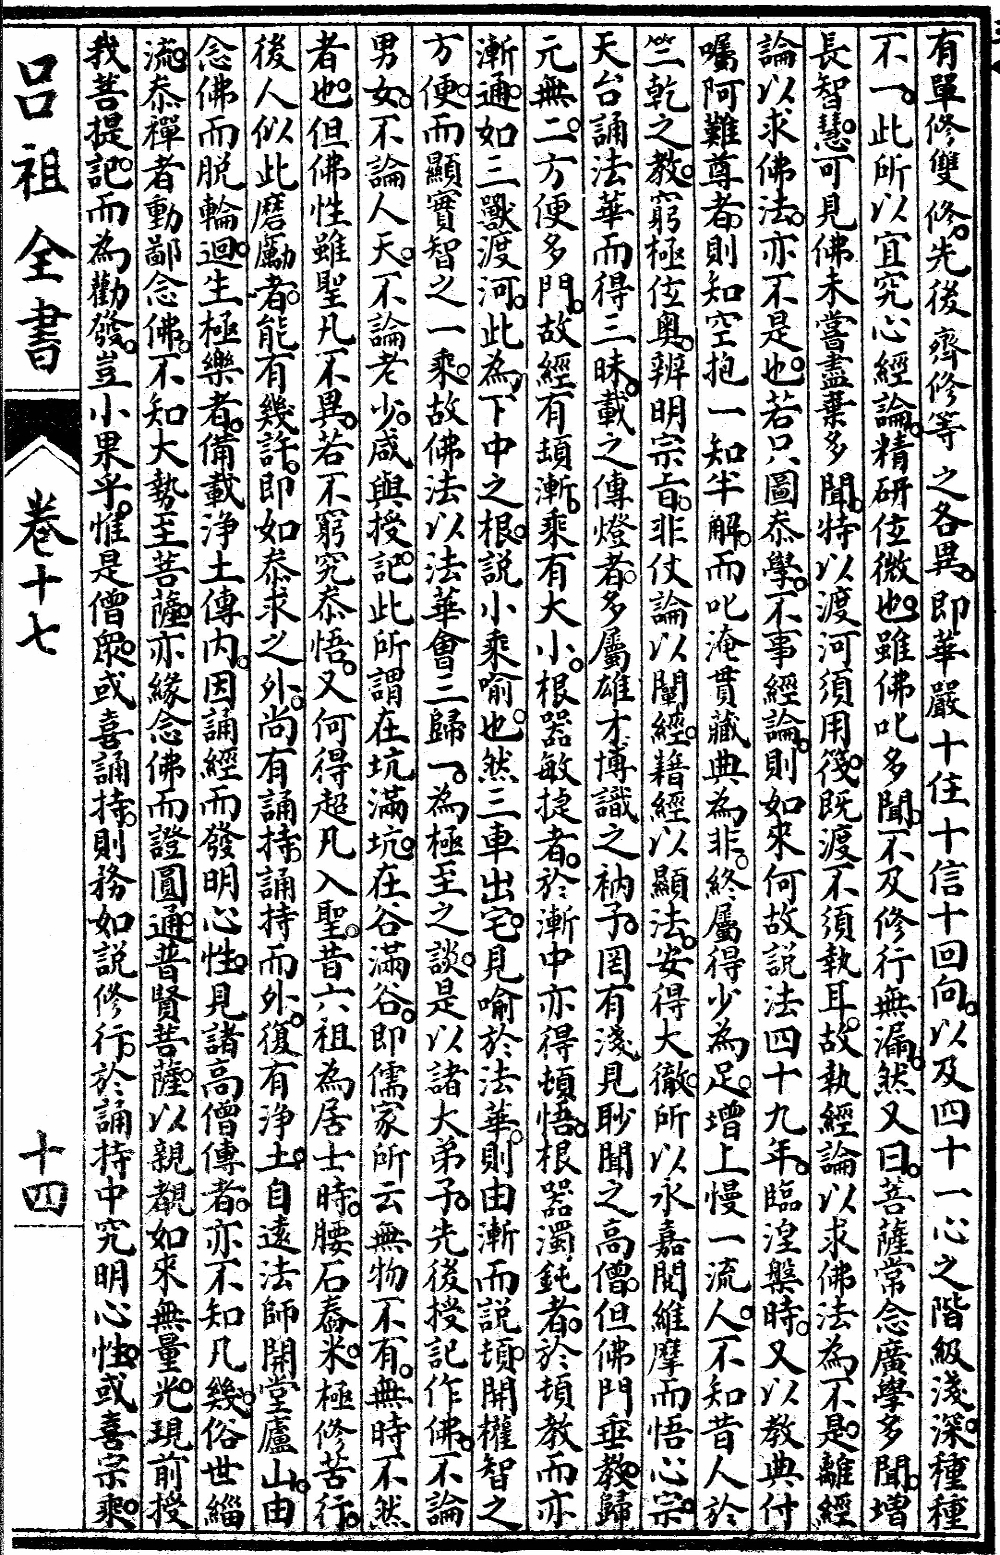 有單修雙修。先後齊修等之各異。即華嚴十住十信十回向。以及四十一心之階級淺深。種種
不一。此所以宜究心經論。精研位微也。雖佛叱多聞。不及修行無漏。然又曰。菩薩常念廣學多聞。增
長智慧。可見佛未嘗盡棄多聞。特以渡河須用筏。既渡不須執耳。故執經論以求佛法為不是。離經
論以求佛法。亦不是也。若只圖叅學。不事經論。則如來何故説法四十九年。臨涅槃時。又以教典付
囑阿難尊者。則知空抱一知半解。而叱淹貫藏典為非。終屬得少為足。增上慢一流人。不知昔人於
竺乾之教。窮極位奧。辨明宗旨。非仗論以闡經。藉經以顯法。安得大徹。所以永嘉閱維摩而悟心宗。
天台誦法華而得三昧。載之傳燈者。多屬雄才博識之衲子。罔有淺見眇聞之高僧。但佛門垂教。歸
元無二。方便多門。故經有頓漸。乘有大小。根器敏捷者。於漸中亦得頓悟。根器濁鈍者。於頓教而亦
漸通。如三獸渡河。此為下中之根。説小乘喻也。然三車出宅。見喻於法華。則由漸而説頓。開權智之
方便。而顯實智之一乘。故佛法以法華會三歸一。為極至之談。是以諸大弟子。先後授記作佛。不論
男女。不論人天。不論老少。咸與授記。此所謂在坑滿坑。在谷滿谷。即儒家所云無物不有。無時不然
者也。但佛性雖聖凡不異。若不窮究叅悟。又何得超凡入聖。昔六祖為居士時。腰石舂米。極修苦行。
後人似此磨勵者。能有幾許。即如叅求之外。尚有誦持。誦持而外。復有淨土。自遠法師開堂廬山。由
念佛而脱輪迴。生極樂者。備載淨土傳内。因誦經而發明心性。見諸高僧傳者。亦不知凡幾。俗世緇
流。叅禪者動鄙念佛。不知大勢至菩薩。亦緣念佛而證圓通。普賢菩薩。以親覩如來無量光。現前授
我菩提記。而為勸發。豈小果乎。惟是僧衆。或喜誦持。則務如説修行。於誦持中究明心性。或喜宗乘。
呂祖全書
卷十七
十四